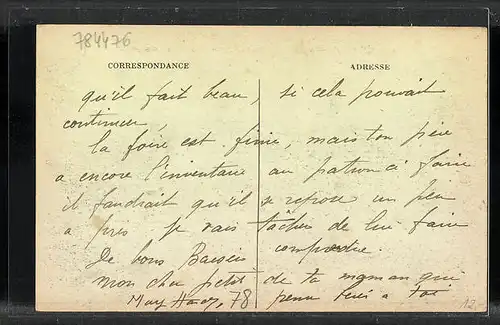 784476
CORRESPONDANCE ADRESSE
qu'il fait beau, si cela pouvait
continuer,
la foire est finie, mais ton père
a encore l'inventaire au patron à faire
il faudrait qu'il se repose un peu
a près je vais tâcher de lui faire
comprendre.
De bons Baisers
mon cher petit de ta maman qui
78 pense à toi
12